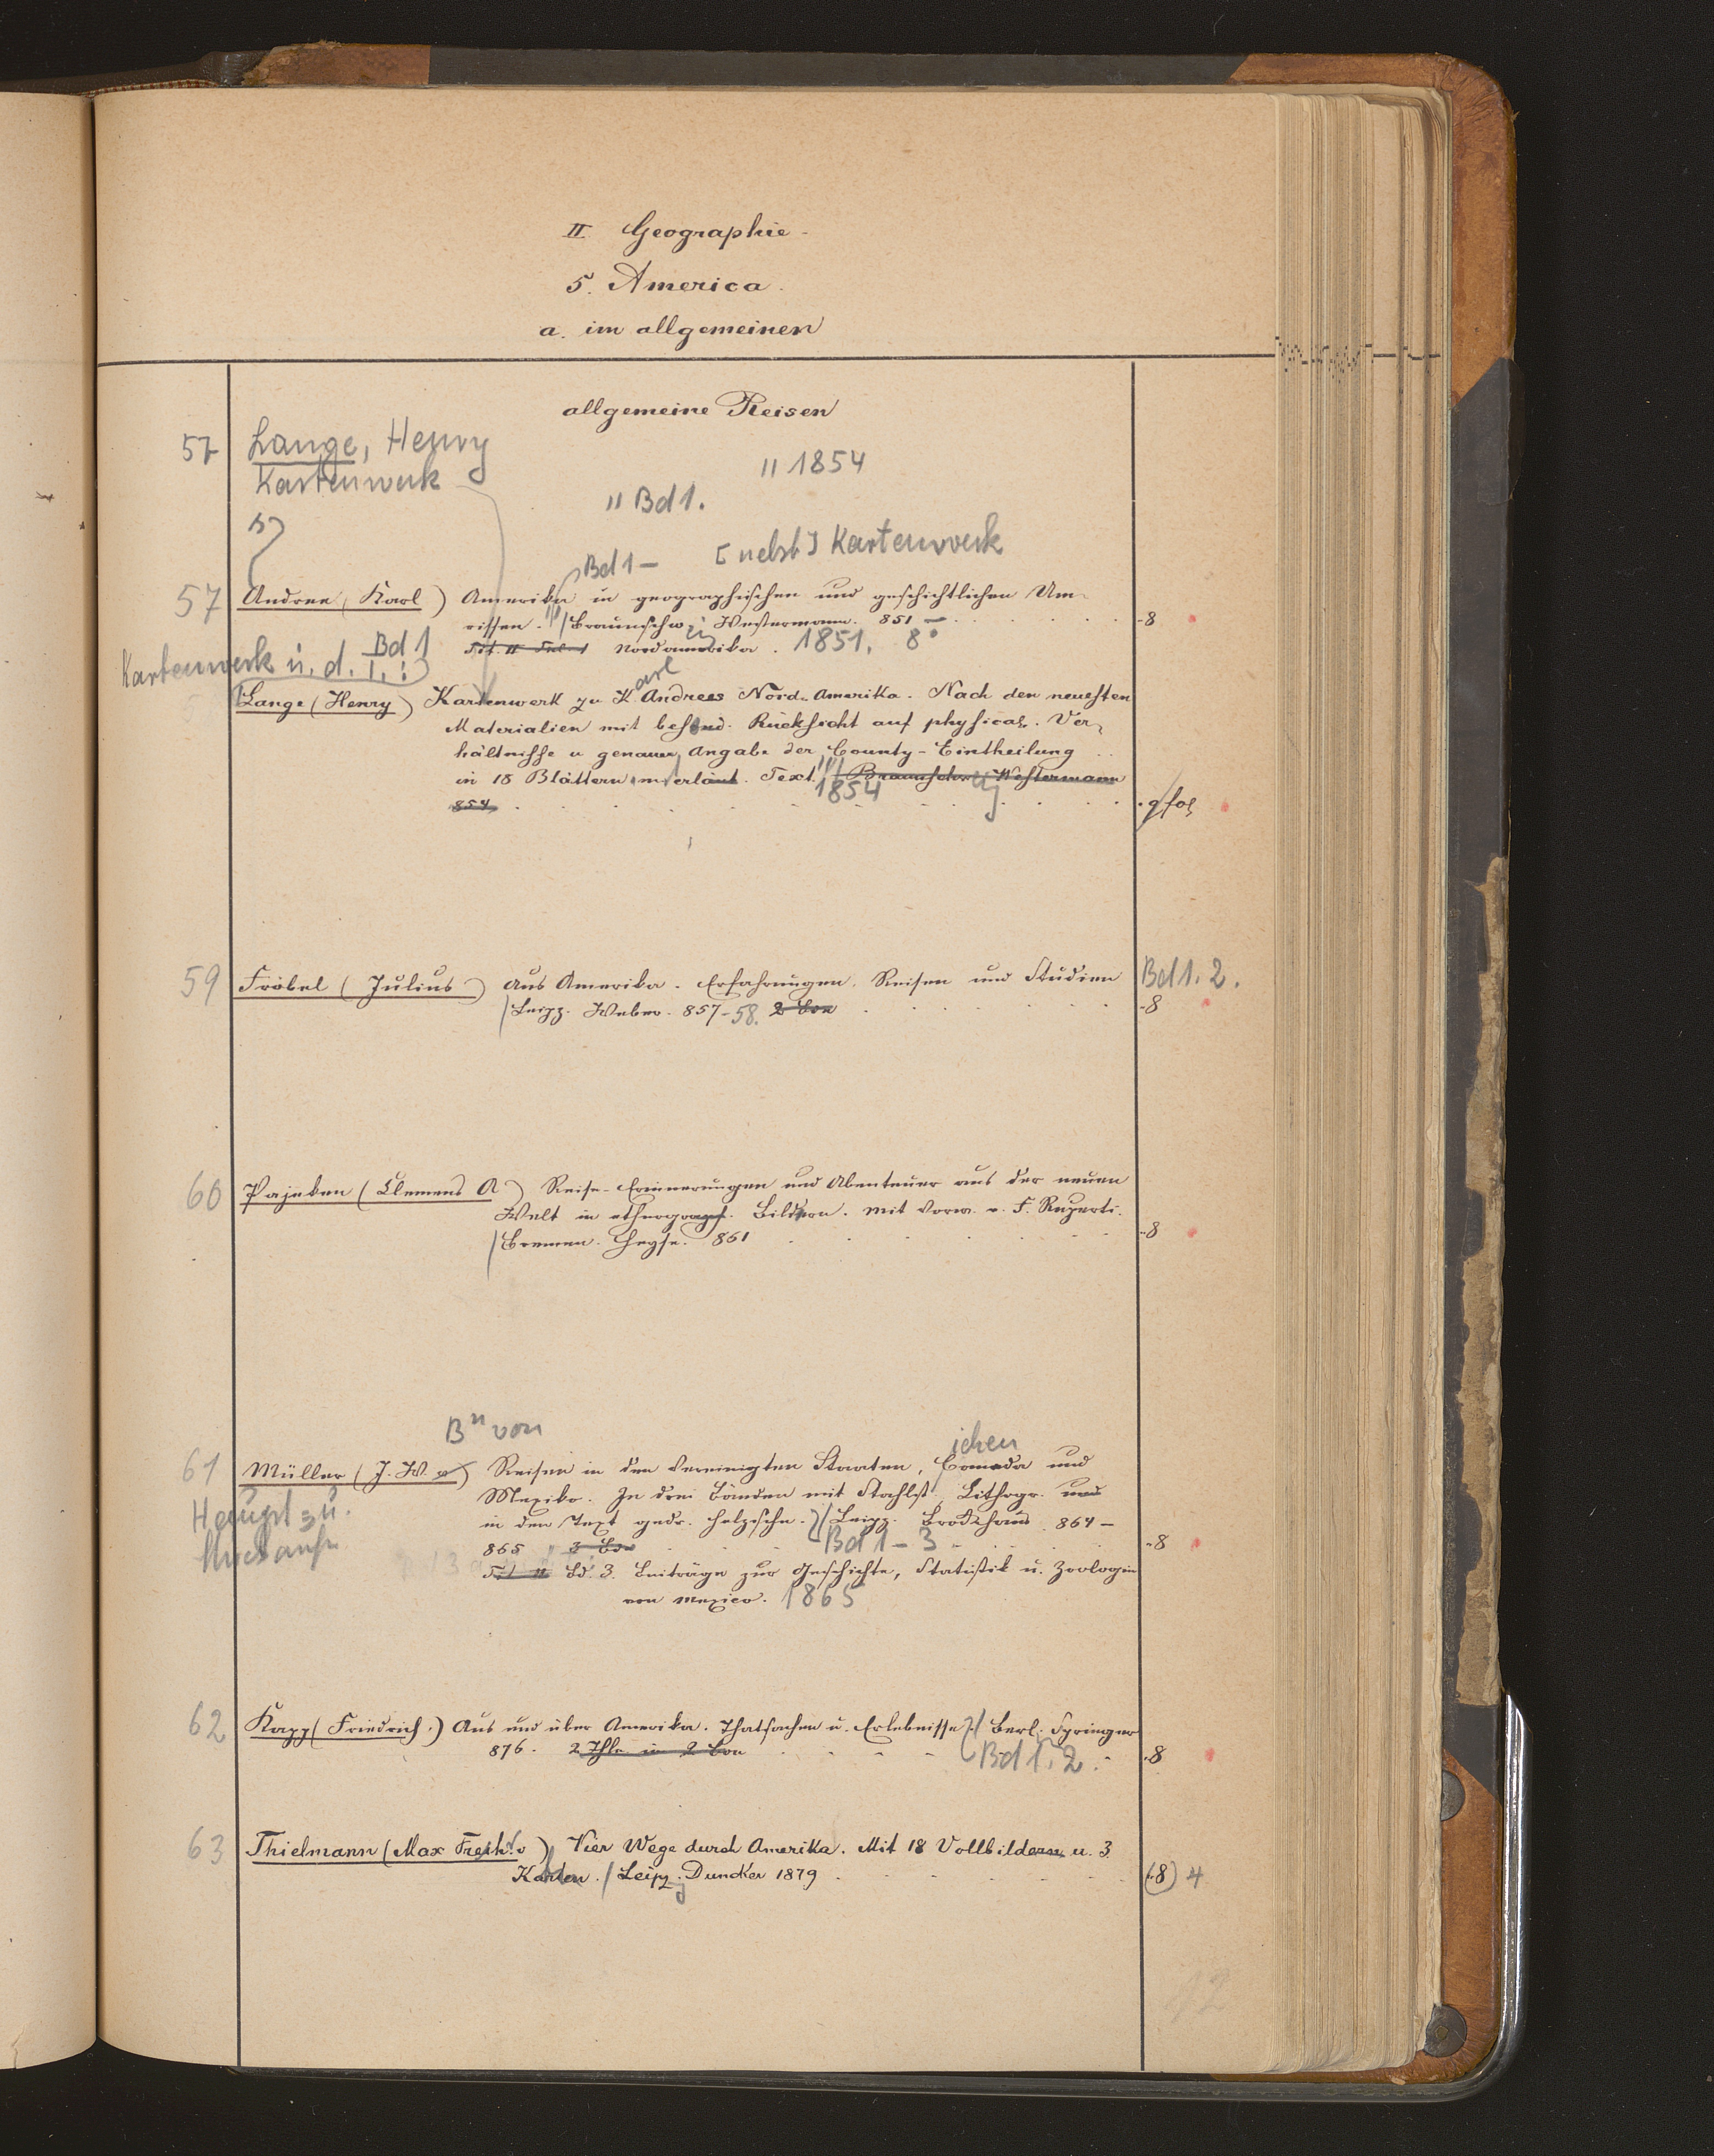 II. Geographie.
5. America.
a. im allgemeinen
allgemeine Reisen
57 Lange, Henry
Kartenwerk
" 1854
" Bd 1.
[nebst] Kartenwerk
Bd 1 –
57 Andree (Karl) Amerika in geographischen und geschichtlichen Um-
rissen. / Braunschw. Westermann. 851 – 8
Tit. II Nordamerika. 1851. 8°
Kartenwerk u. d. T.: Bd 1
Lange (Henry) Kartenwerk zu Karl Andrees Nord-Amerika. Nach den neuesten
Materialien mit besond. Rücksicht auf physical. Ver-
hältnisse u genauer Angabe der County-Eintheilung
in 18 Blättern m erläut. Text. / Braunschw. Westermann
854 1854 gr fol
59 Fröbel (Julius) Aus Amerika. Erfahrungen, Reisen und Studien Bd 1. 2.
/ Leipz. Weber. 857-58. 2 Bde 8
60 Pajeken (Clemens A) Reise-Erinnerungen und Abenteuer aus der neuen
Welt in ethnograph. Bildern. Mit Vorw. v. F. Ruperti.
/ Bremen. Heyse. 861 8
Bn von
ichen
61 Müller (J. W. v) Reisen in den Vereinigten Staaten, Canada und
Mexiko. In drei Bänden mit Stahlst., Lithogr. und
in den Text gedr. Holzschn. / Leipz. Brockhaus 864 –
865 3 Bde Bd 1 – 3 8
Bd. 3. Beiträge zur Geschichte, Statistik u. Zoologie
von Mexico. 1865
62 Kapp (Friedrich) Aus und über Amerika. Thatsachen u. Erlebnisse / Berl. Springer
876. 2 Thle in 2 Bde Bd 1. 2. 8
63 Thielmann (Max Freih. v) Vier Wege durch Amerika. Mit 18 Vollbildern u. 3
Karten. / Leipz. Duncker 1879 (8) 4